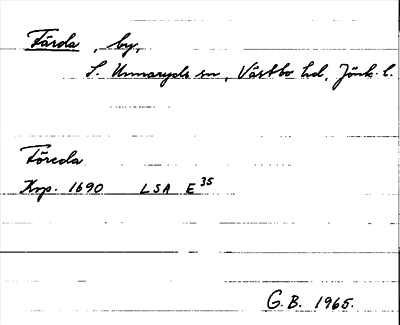 Färda, by,
S. Unnaryds sn, Västbo hd, Jönk. l.
Föreda
Krp. 1690 LSA E 35
G.B. 1965.